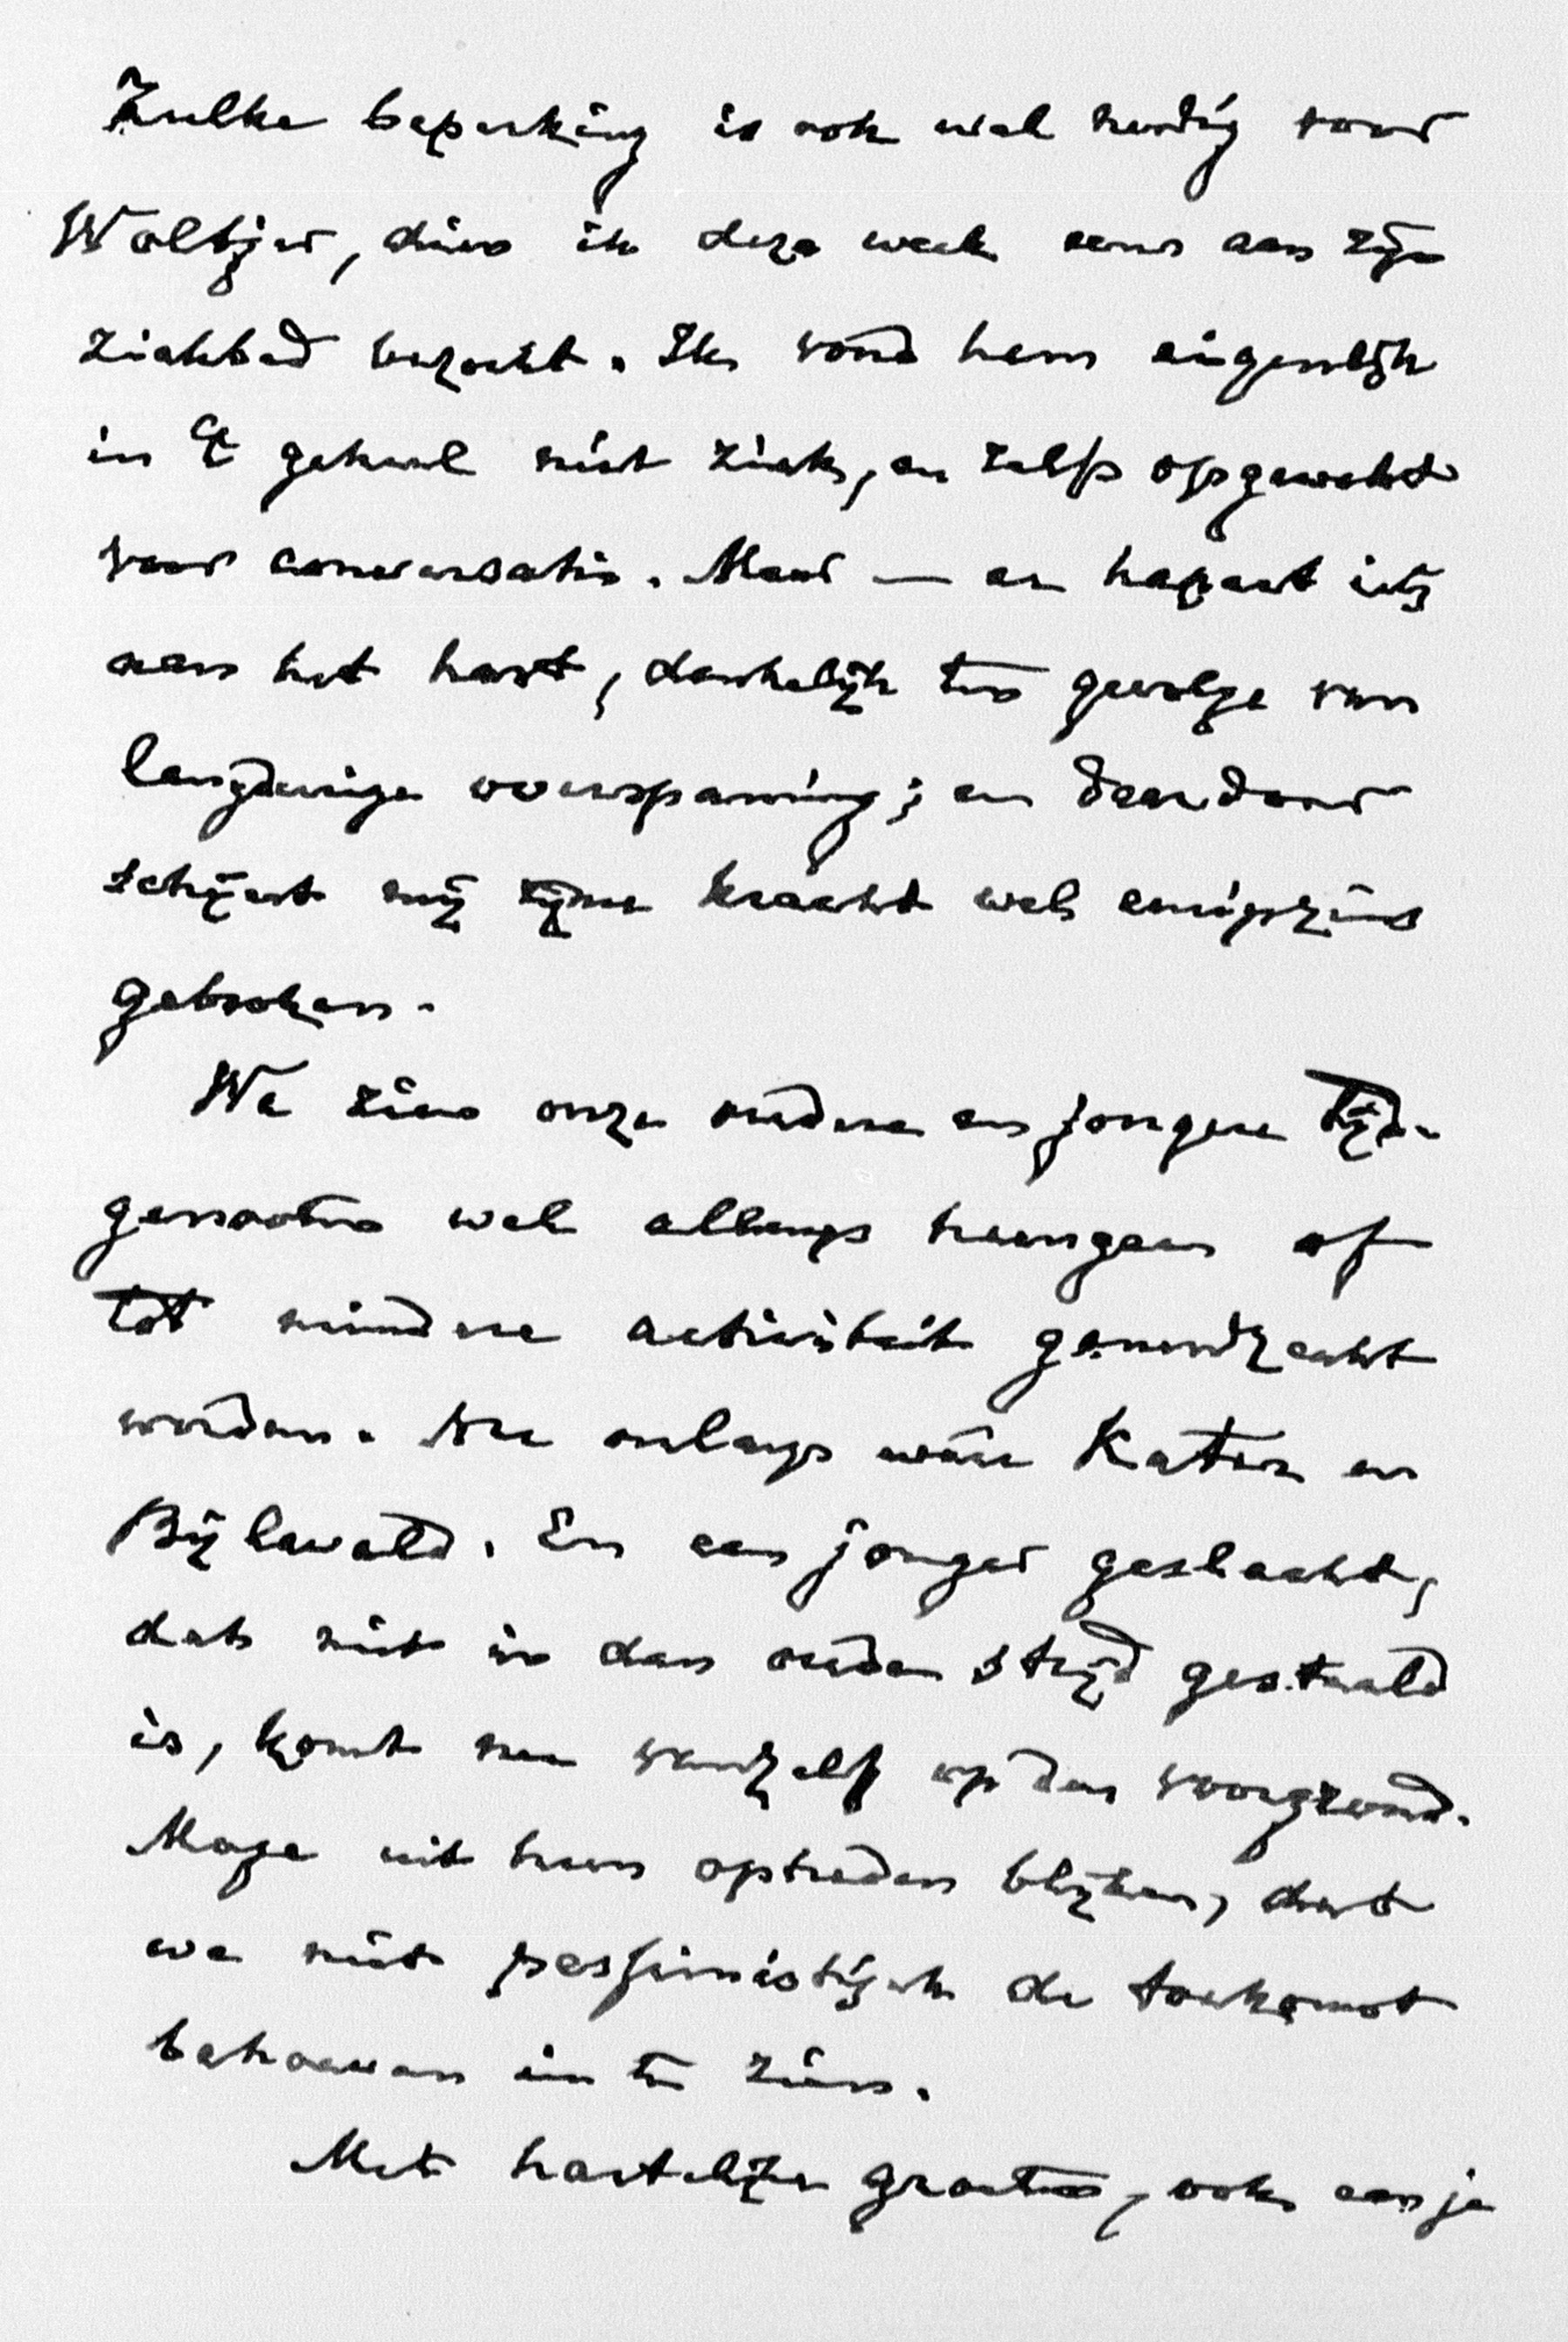 Zulke beperking is ook wel noodig voor
Woltjer, dien ik deze week eens aan zijn
ziekbed bezocht. Ik vond hem eigenlijk
in 't geheel niet ziek, en zelfs opgewekt
voor conversatie. Maar — er hapert iets
aan het hart, denkelijk ten gevolge van
langdurige overspanning; en daardoor
schijnt mij zijne kracht wel eenigszins
gebroken.
We zien onze oudere en jongere tijd-
genooten wel allengs heengaan of
tot mindere activiteit genoodzaakt
worden. Nu onlangs weêr Kater en
Bijleveld. En een jonger geslacht,
dat niet in den ouden strijd gestaald
is, komt nu vanzelf op den voorgrond.
Moge uit hun optreden blijken, dat
we niet pessimistisch de toekomst
behoeven in te zien.
Met hartelijke groeten, ook aan je